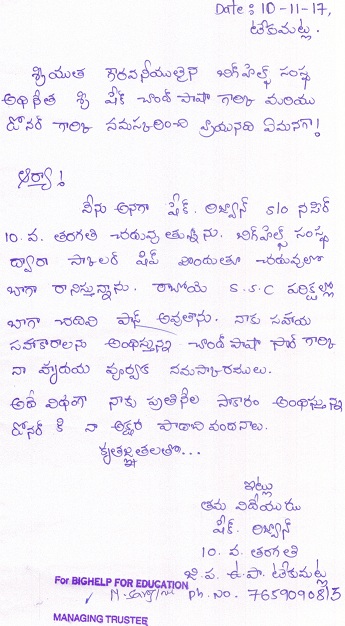 Date: 10-11-17,
టేకుమట్ల.
శ్రీయుత గౌరవనీయులైన బిగ్‌హెల్ప్ సంస్థ
అధినేత శ్రీ షేక్ చాంద్ పాషా గారికి మరియు
డోనర్ గారికి నమస్కరించి వ్రాయునది ఏమనగా!
ఆర్యా!
నేను అనగా షేక్. రిజ్వాన్ S/o నసీర్
10. వ. తరగతి చదువు తున్నాను. బిగ్‌హెల్ప్ సంస్థ
ద్వారా స్కాలర్ షిప్ పొందుతూ చదువులో
బాగా రాణిస్తున్నాను. రాబోయే S.S.C పరీక్షల్లో
బాగా చదివి పాస్ అవుతాను. నాకు సహాయ
సహకారాలను అందిస్తున్న చాంద్ పాషా సార్ గారికి
నా హృదయ పూర్వక నమస్కారములు.
అదే విధంగా నాకు ప్రతినెల సాకారం అందిస్తున్న
డోనర్ కి నా అక్షర పాదాభి వందనాలు.
కృతజ్ఞతలతో...
ఇట్లు
తమ విదేయుడు
షేక్. రిజ్వాన్
10. వ. తరగతి
జి. ప. ఉ. పా. టేకుమట్ల
Ph. No. 7659090815
For BIGHELP FOR EDUCATION
MANAGING TRUSTEE